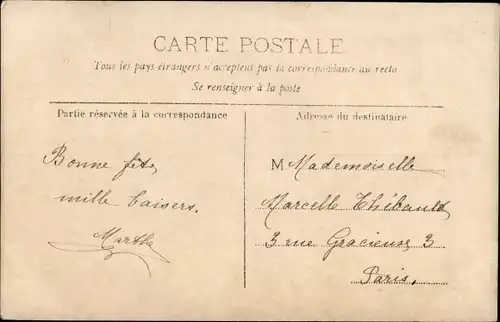 CARTE POSTALE
Tous les pays étrangers n'acceptent pas la correspondance au recto
Se renseigner à la poste
Partie réservée à la correspondance
Adresse du destinataire
Bonne fête
mille baisers.
Marthe
M Mademoiselle
Marcelle Thébault
3 rue Gracieuse 3
Paris.